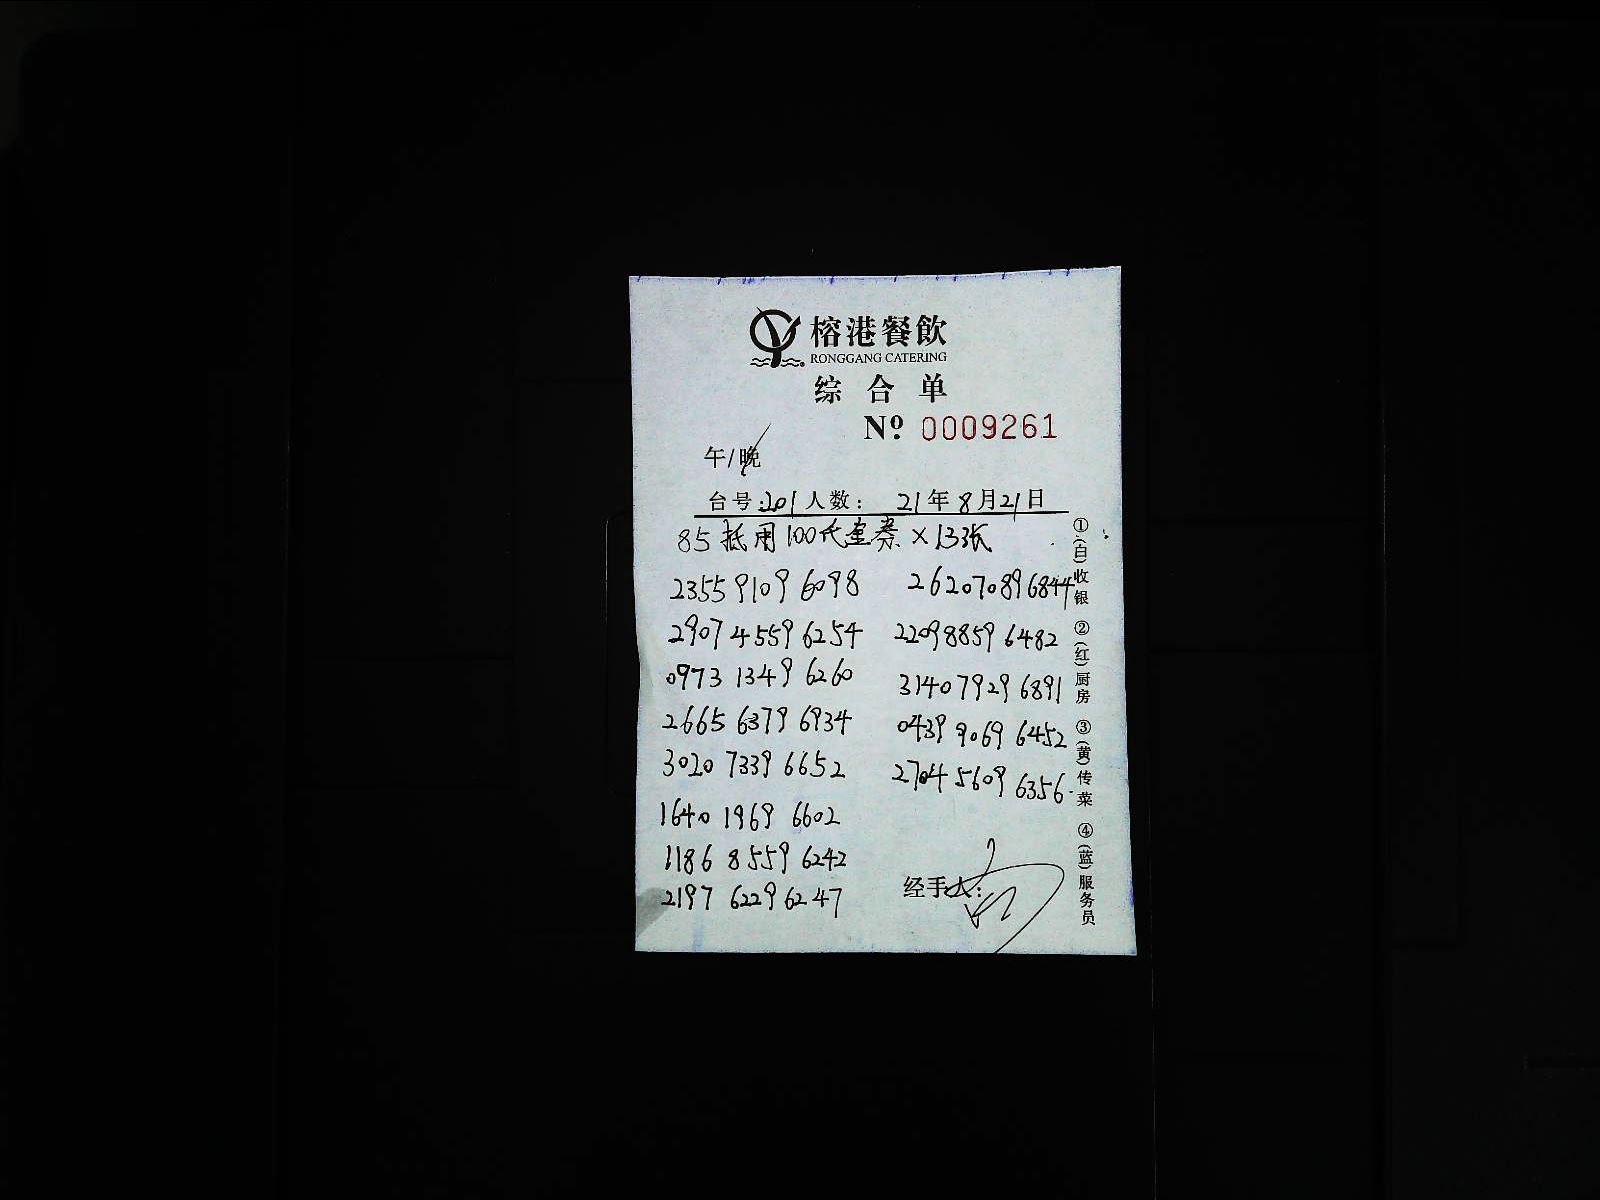 榕港餐飲
RONGGANG CATERING
综合单
Nº 0009261
午/晚
台号:201 人数: 21年8月21日
85抵用100代金券×13张
2355 9109 6098
2907 4559 6254
0973 1349 6260
2665 6379 6934
3020 7339 6652
1640 1969 6602
1186 8559 6242
2197 6229 6247
2620 7089 6844
2209 8859 6482
3140 7929 6891
0439 9069 6452
2704 5609 6356
经手人:
①(白)收银 ②(红)厨房 ③(黄)传菜 ④(蓝)服务员